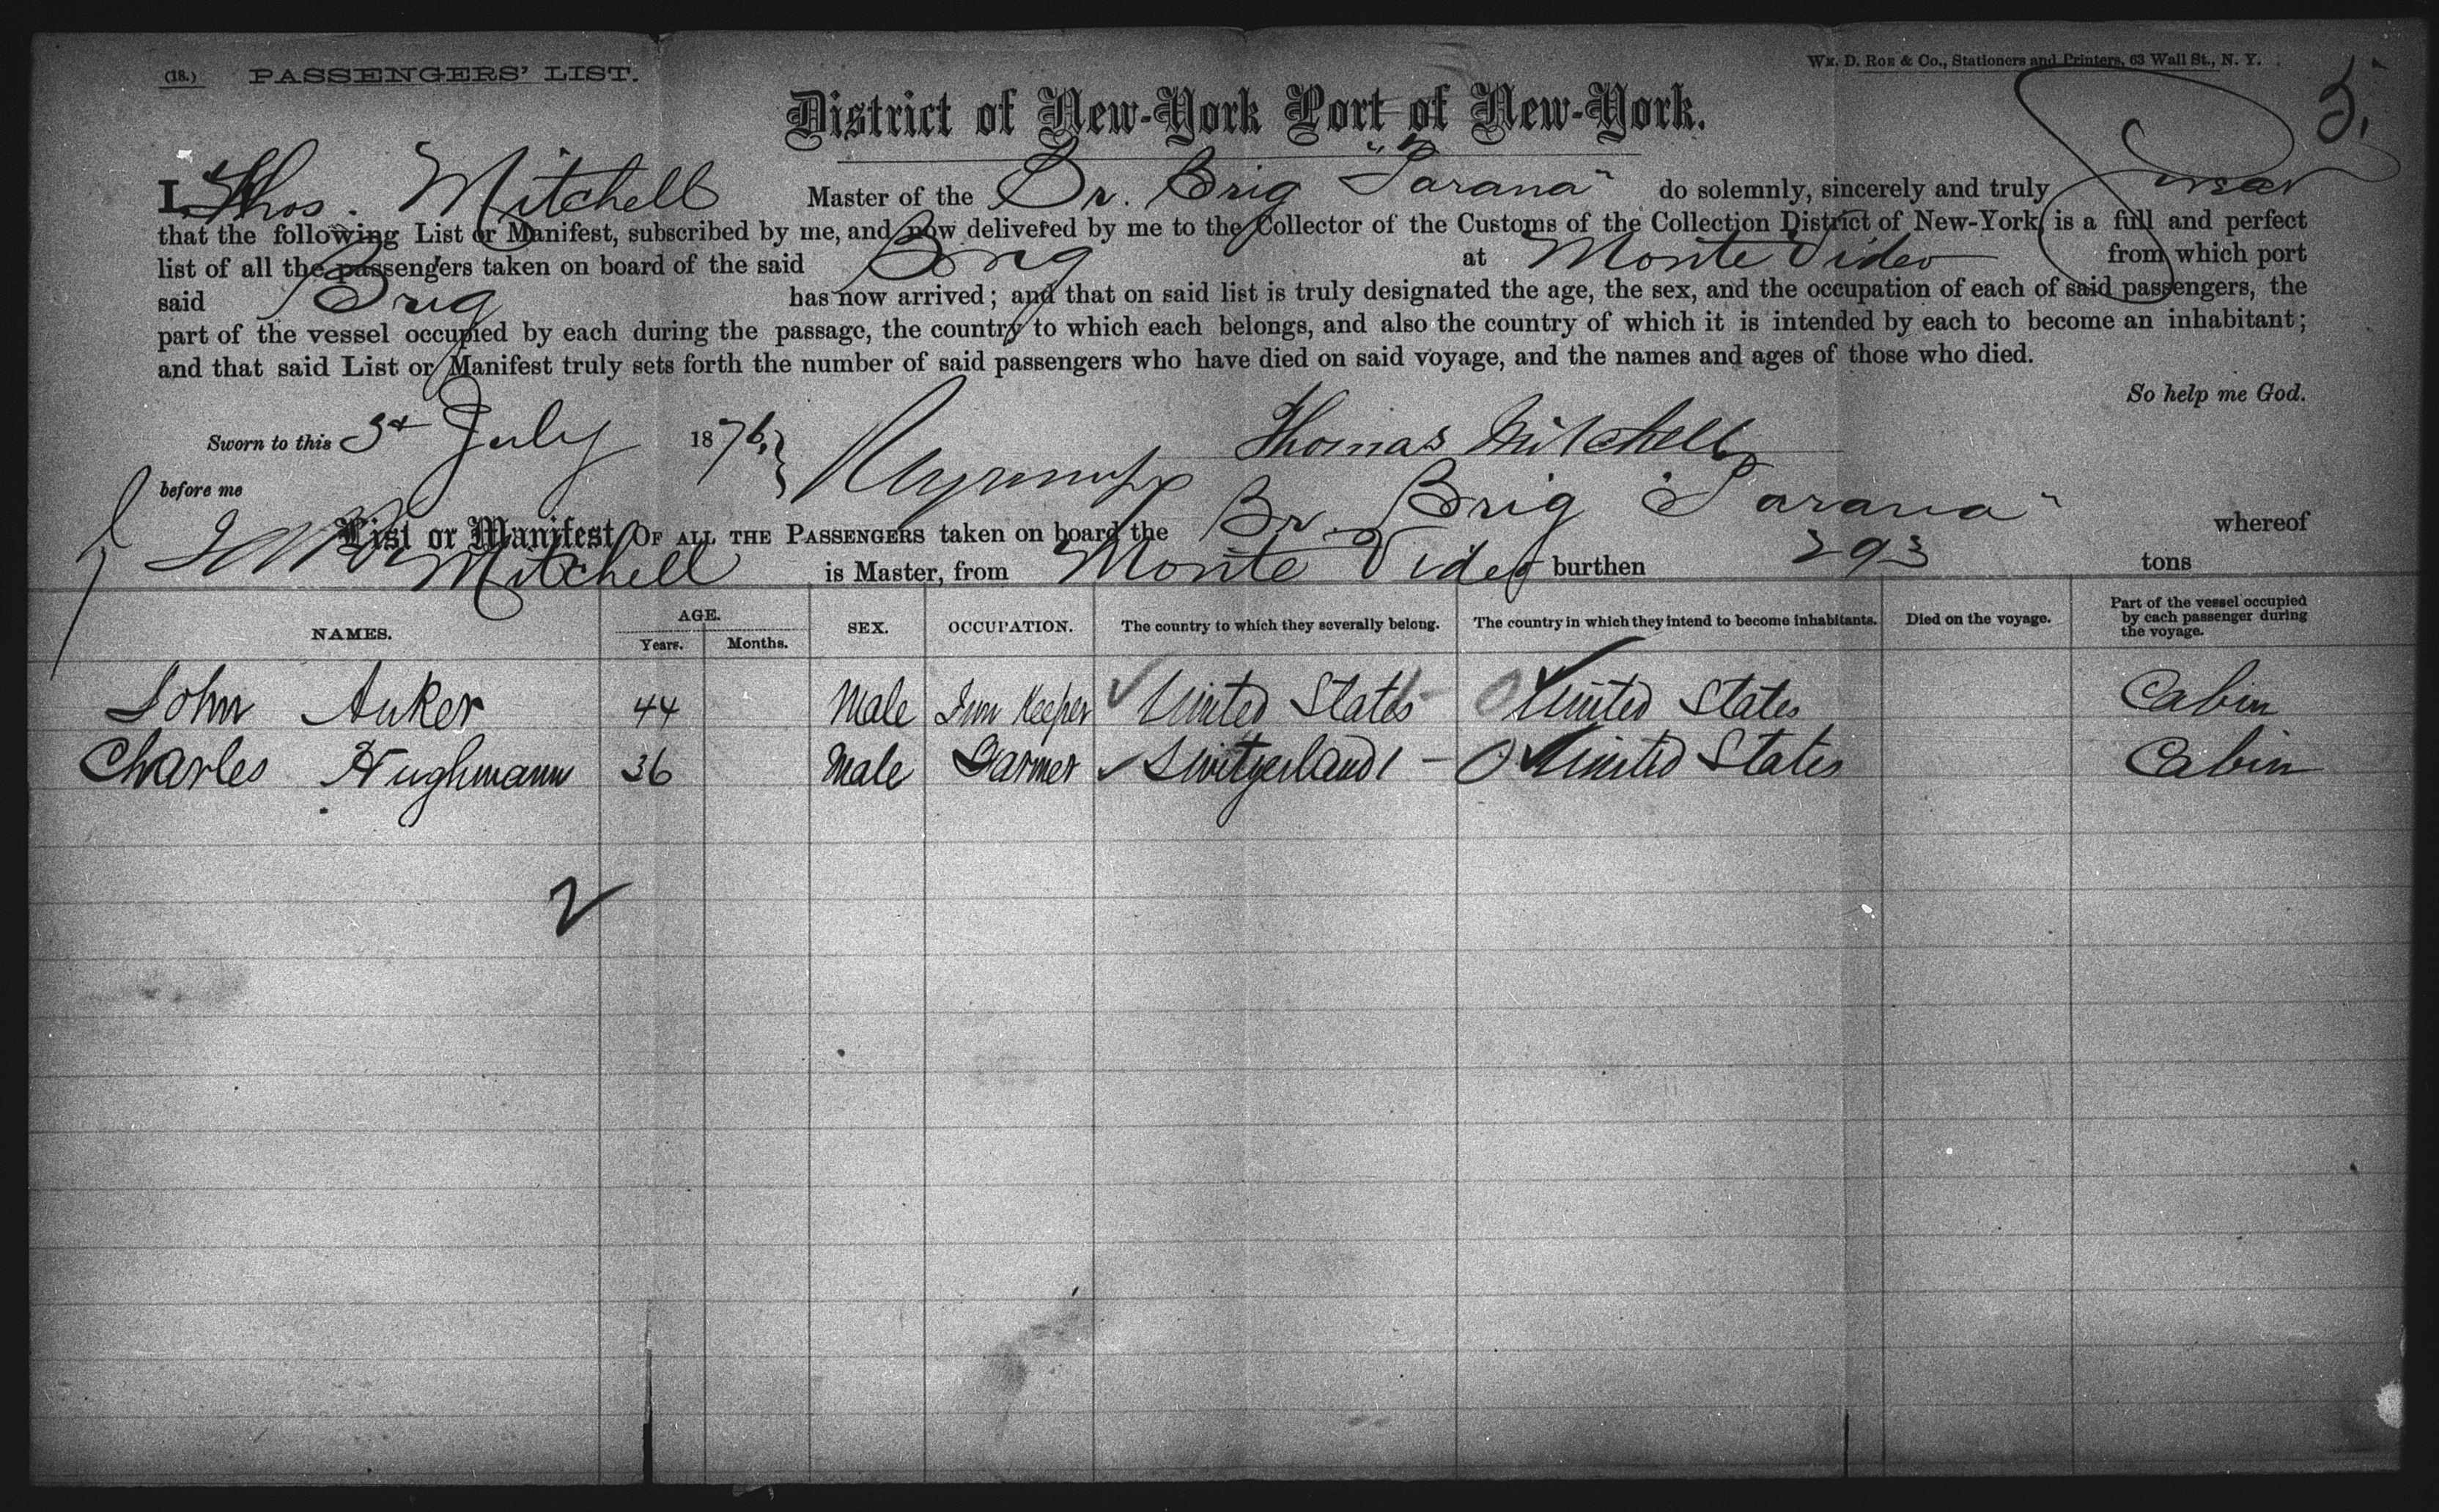 (18.) PASSENGERS' LIST.
Wm. D. Roe & Co., Stationers and Printers, 63 Wall St., N. Y.
5.
District of New-York Port of New-York.
I, Thos. Mitchell Master of the Br. Brig "Parana" do solemnly, sincerely and truly swear
that the following List or Manifest, subscribed by me, and now delivered by me to the Collector of the Customs of the Collection District of New-York, is a full and perfect
list of all the passengers taken on board of the said Brig at Monte Video from which port
said Brig has now arrived; and that on said list is truly designated the age, the sex, and the occupation of each of said passengers, the
part of the vessel occupied by each during the passage, the country to which each belongs, and also the country of which it is intended by each to become an inhabitant;
and that said List or Manifest truly sets forth the number of said passengers who have died on said voyage, and the names and ages of those who died.
So help me God.
Sworn to this 3d July 1876. Thomas Mitchell
before me
List or Manifest OF ALL THE PASSENGERS taken on board the Br. Brig "Parana" whereof
Mitchell is Master, from Monte Video burthen 293 tons
NAMES. AGE. Years. Months. SEX. OCCUPATION. The country to which they severally belong. The country in which they intend to become inhabitants. Died on the voyage. Part of the vessel occupied by each passenger during the voyage.
John Auker 44 Male Inn Keeper United States United States Cabin
Charles Hughmann 36 Male Farmer Switzerland United States Cabin
2